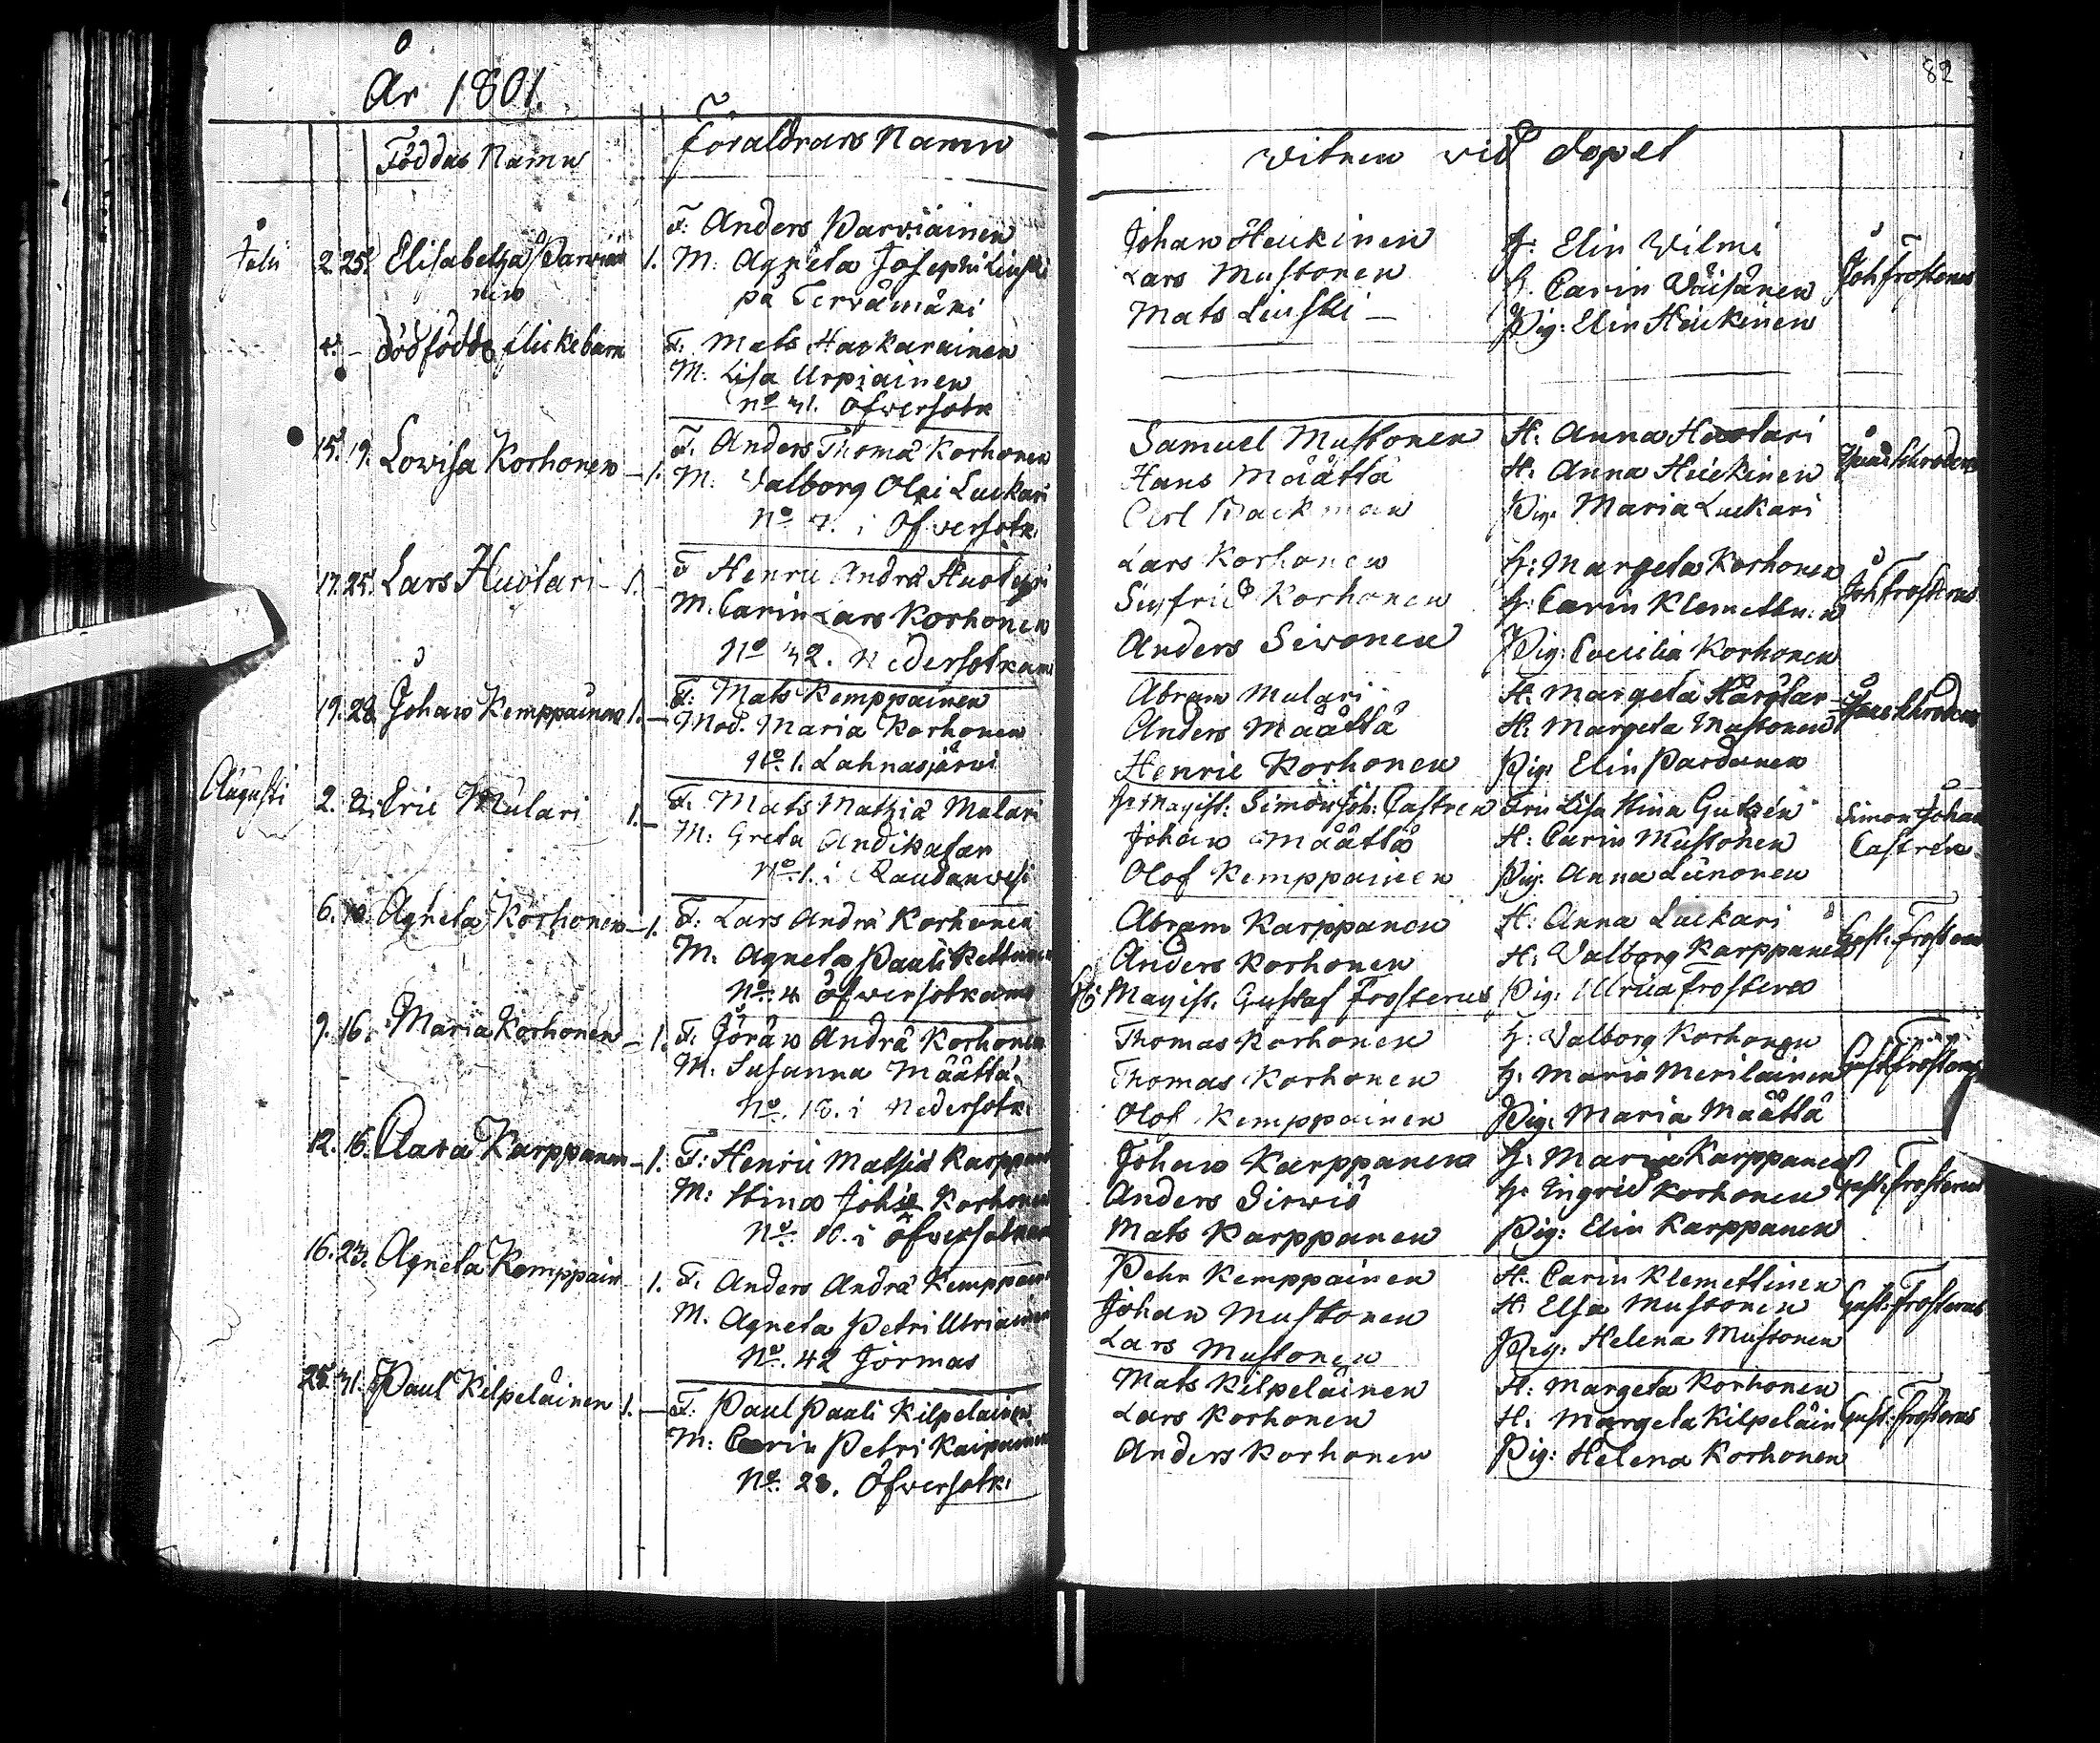 År 1801.
82
Föddas Namn
Föräldrars Namn
Witnen vid dopet
Julii
2. 25. Elisabetha Parviai
nen
1.
F: Anders Parviäinen
M: Agneta Josephi Leinski
på Tervämäki
Johan Heickinen
Lars Mustonen
Mats Leinski –
H: Elin Vilmi
H. Carin Väisänen
Pig: Elin Heickinen
Joh Frosterus
dödfödd flickebarn
F. Mats Haskarainen
M: Lisa Urpiainen
No 31. Öfversotk
15. 19. Lovisa Korhonen – 1.
F. Anders Thoma Korhonen
M: Valborg Olri Luckari
No 7. i Öfversotk.
Samuel Mustonen
Hans Määttä
Carl Backman
H. Anna Huotari
H. Anna Heickinen
Pig. Maria Luckari
17. 25. Lars Huotari – 1. –
F Henric Andrä Huotari
M. Carin Lars Korhonen
No 32. Nedersotkam
Lars Korhonen
Sigfrid Korhonen
Anders Sivonen
H: Margeta Korhonen
H: Carin Klemettin.n
Pig: Coecilia Korhonen
Joh Frosterus
19. 28. Johan Kemppainen 1. –
F: Mats Kemppainen
Mod. Maria Korhonen
No. 1. Lahnasjärvi
Abram Mulari
Anders Määttä
Henric Korhonen
H. Margeta Kärgtar
H. Margeta Mustonen
Pig: Elin Pardanen
Augusti
2. 2. Eric Mulari 1. –
F. Mats Matzia Mulari
M: Greta Andikatar
No. 1. i Raudanvesi
Hr Magist: Simon Joh: Castren
Johan Määttä
Olof Kemppainen
Fru Lisa Stina Gutzén
H: Carin Mustonen
Pig. Anna Leinonen
Simon Johan
Castrén.
6. 10. Agneta Korhonen – 1.
F: Lars Andrä Korhonen
M: Agneta Pauli Kettunen
No. 4 öfversotkamo
Abram Karppanen
Anders Korhonen
Hr Magist. Gustaf Frosterus
H: Anna Luckari
H: Valborg Karppanen
Pig. Ulrica Frosterus
Gust. Frosterus
9. 16. Maria Korhonen – 1.
F. Jöran Andrä Korhonen
M. Susanna Määttä.
No. 18. i Nedersotk.
Thomas Korhonen
Thomas Korhonen
Olof Kemppainen
H: Valborg Korhonen
H: Maria Meriläinen
Pig. Maria Määttä
Gust Frosterus
12. 16. Clara Karppanen – 1.
F: Henric Matzia Karppanen
M: Stina Johis Korhonen
No. 16. i öfversotkam
Johan Karppanen
Anders Sirviö
Mats Karppanen
H: Maria Karppanen
H: Ingrid Korhonen
Pig: Elin Karppanen
Gust. Frosterus
16. 23. Agneta Kemppain 1.
F. Anders Andrä Kemppain
M. Agneta Petri Utriainen
No. 42 Jormas
Pehr Kemppainen
Johan Mustonen
Lars Mustonen
H: Carin Klemettinen
H: Elsa Mustonen
Pig. Helena Mustonen
Gust. Frosterus
25. 31. Paul Kilpeläinen 1. –
F: Paul Pauli Kilpeläinen
M: Carin Petri Kaipainen
No. 28. Öfversotk.
Mats Kilpeläinen
Lars Korhonen
Anders Korhonen
H: Margeta Korhonen
H: Margeta Kilpeläin
Pig: Helena Korhonen
Gust. Frosterus